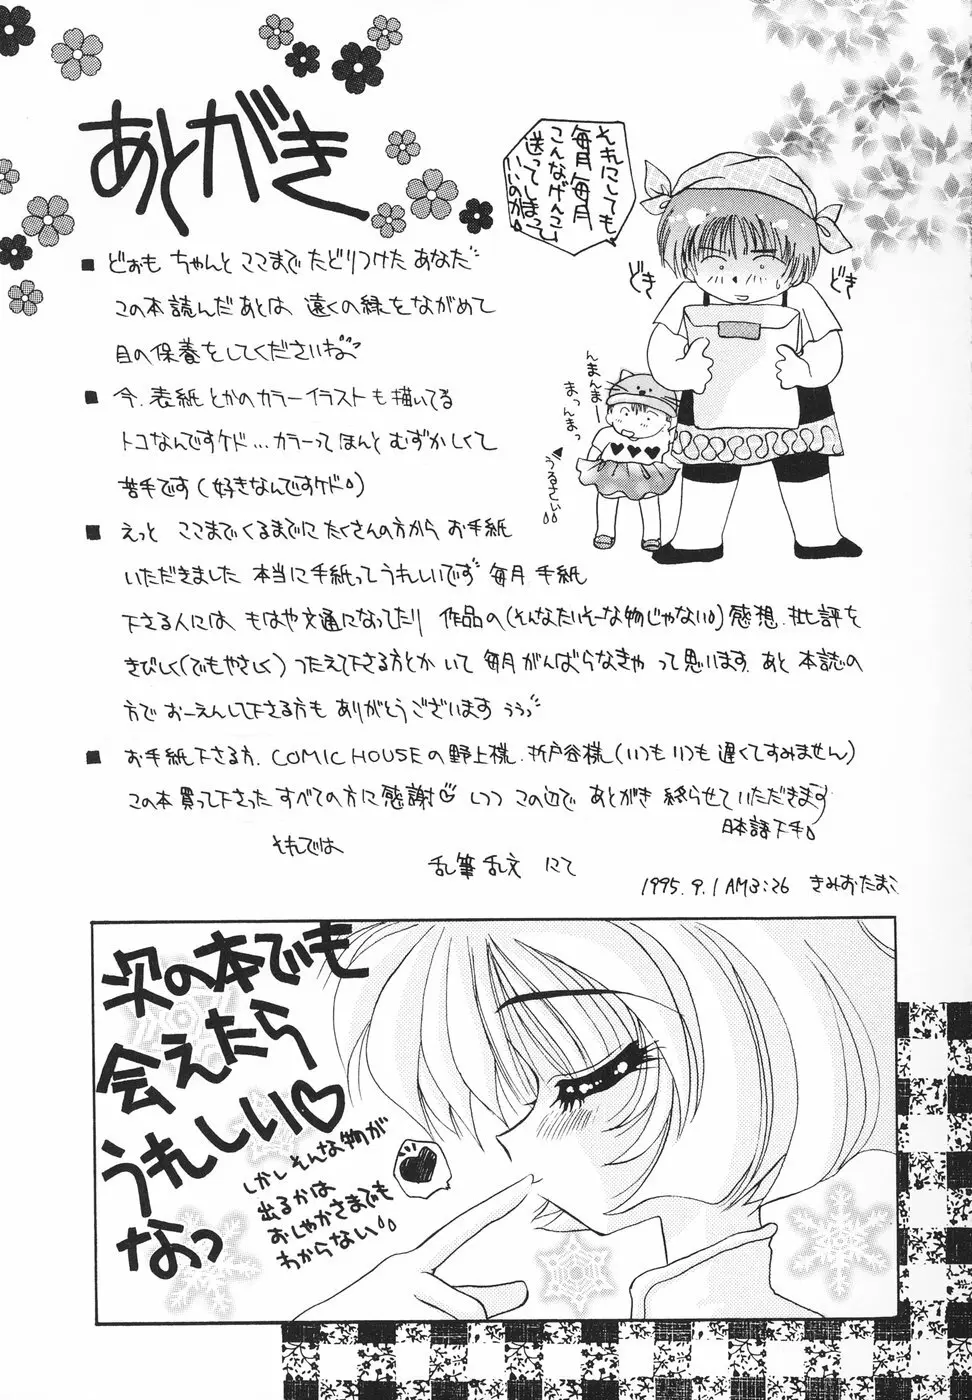 あとがき
それにしても
毎月毎月
こんなげんこー
送ってしまって
いいのか
どき
どき
んまんまー
まっんまっ
うるさい
■どぉも ちゃんと ここまで たどりつけた あなた
この本読んだあとは、遠くの緑をながめて
目の保養をしてくださいね
■今、表紙とかのカラーイラストも描いてる
トコなんですケド…カラーってほんと むずかしくて
苦手です(好きなんですケド)
■えっと ここまでくるまでに たくさんの方から お手紙
いただきました 本当に手紙ってうれしいです 毎月 手紙
下さる人には、もはや文通になってたり 作品の(そんなたいそーな物じゃない)感想、批評を
きびしく(でもやさしく)つたえて下さる方とか いて 毎月がんばらなきゃ って思います あと 本誌の
方で おーえんして下さる方も ありがとうございます ううっ
■お手紙下さる方、COMIC HOUSEの野上様、折戸谷様(いつもいつも遅くてすみません)
この本買って下さった すべての方に感謝♡しつつ この辺で あとがき 終らせていただきます
日本語下手
それでは
乱筆乱文 にて
1995.9.1 AM3:26 きみおたまこ
次の本でも
会えたら
うれしい♡
なっ
しかしそんな物が
出るかは
おしゃかさまでも
わからない